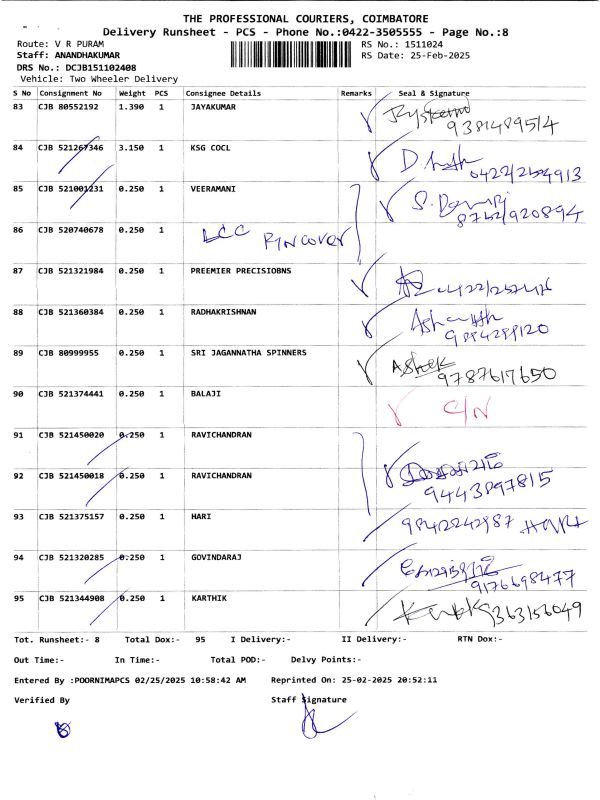 THE PROFESSIONAL COURIERS, COIMBATORE
Delivery Runsheet - PCS - Phone No.:0422-3505555 - Page No.:8
Route: V R PURAM RS No.: 1511024
Staff: ANANDHAKUMAR RS Date: 25-Feb-2025
DRS No.: DCJB151102408
Vehicle: Two Wheeler Delivery
S No Consignment No Weight PCS Consignee Details Remarks Seal & Signature
83 CJB 80552192 1.390 1 JAYAKUMAR
84 CJB 521267346 3.150 1 KSG COCL
85 CJB 521001231 0.250 1 VEERAMANI
86 CJB 520740678 0.250 1 LCC PIN COVER
87 CJB 521321984 0.250 1 PREEMIER PRECISIOBNS
88 CJB 521360384 0.250 1 RADHAKRISHNAN
89 CJB 80999955 0.250 1 SRI JAGANNATHA SPINNERS Ashok
9787617650
90 CJB 521374441 0.250 1 BALAJI C/N
91 CJB 521450020 0.250 1 RAVICHANDRAN
92 CJB 521450018 0.250 1 RAVICHANDRAN
9443897815
93 CJB 521375157 0.250 1 HARI 9842242987
94 CJB 521320285 0.250 1 GOVINDARAJ
9176698477
95 CJB 521344908 0.250 1 KARTHIK
Tot. Runsheet:- 8 Total Dox:- 95 I Delivery:- II Delivery:- RTN Dox:-
Out Time:- In Time:- Total POD:- Delvy Points:-
Entered By :POORNIMAPCS 02/25/2025 10:58:42 AM Reprinted On: 25-02-2025 20:52:11
Verified By Staff Signature